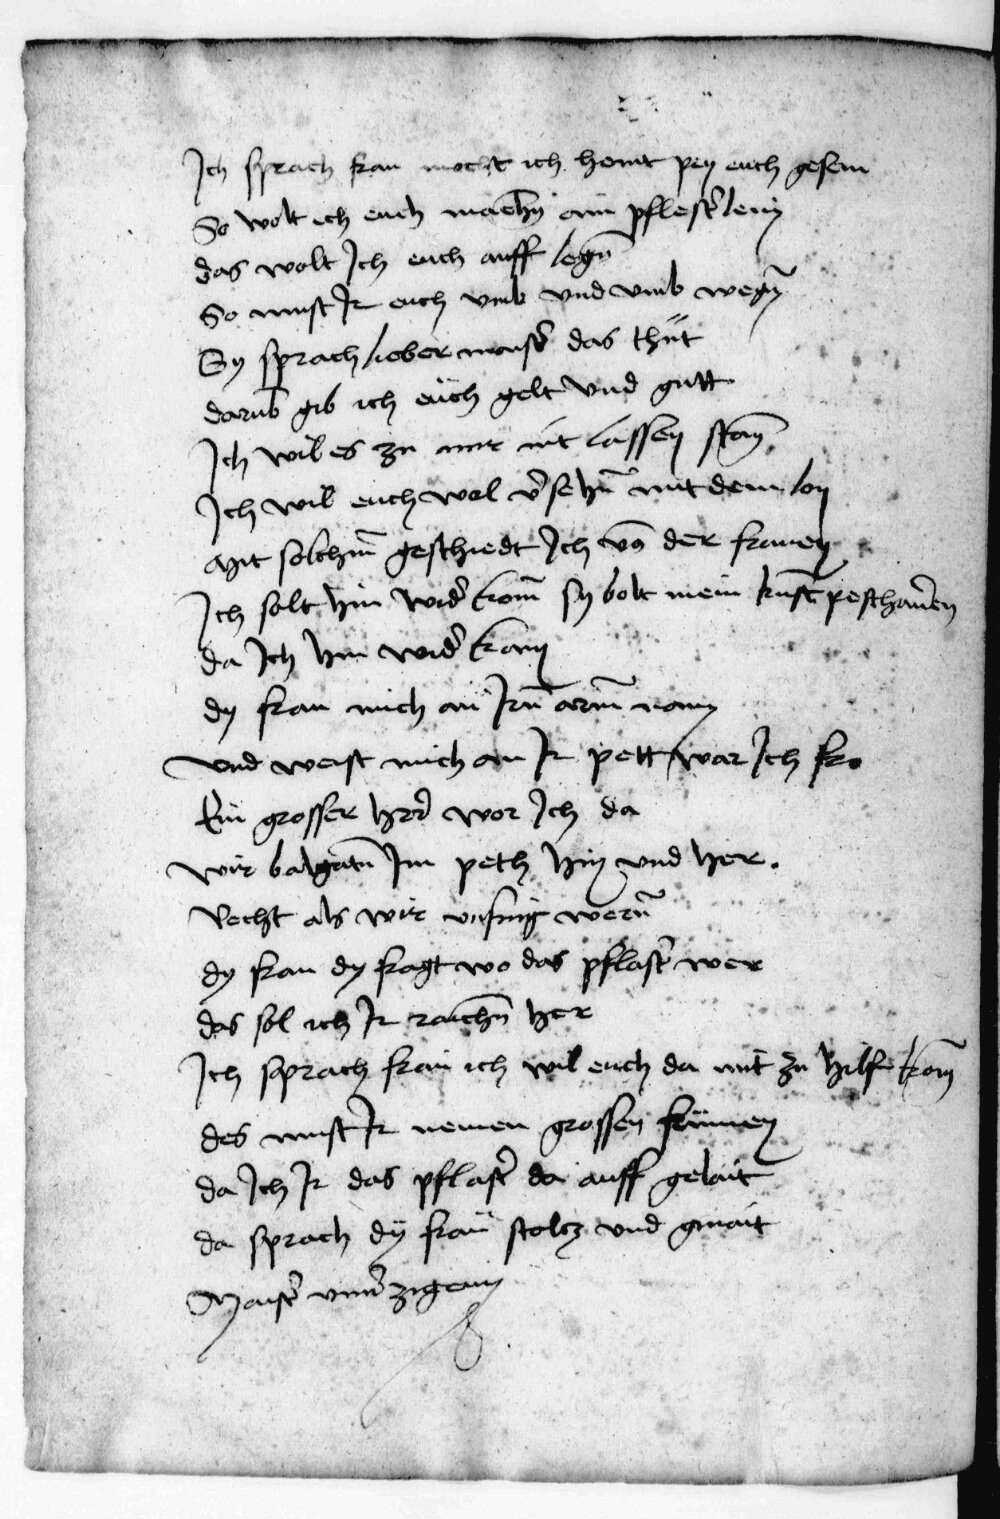 Ich sprach frau mocht ich heint pey euch gesein
So wolt ich euch machñ ain pflest̄erlein
das wolt Ich euch auff legñ
So must Ir euch vmb vnd vmb wegñ
Sy sprach lieber maist̄ das thüt
darub̄ gib ich eüch gelt vnd gutt
Ich wil es zu mir nit lassen stan
Ich wil euch wol v̄sehn̄ mit dem lon
Mit solchm̄ geschiedt Ich vō der frauen
Ich solt hin wid̄ kom̄ sy bolt mein kunst peschawen
da Ich hin wid̄ kam
dy frau mich an Irn̄ arm̄ nam
vnd weist mich an Ir pett war Ich fro
Ein grosser her̄ wor Ich da
wir balgatn̄ Im peth hin vnd her.
Recht als wir vnsinig wern̄
dy frau dy fragt wo das pflast̄ wer
das sol ich Ir raichn̄ her
Ich sprach frau ich wil euch da mit zu hilf kom̄
des must Ir nemen grossen frümen
da Ich Ir das pflast̄ da auff gelait
da sprach dÿ fraü stolcz vnd gmait
Maist̄